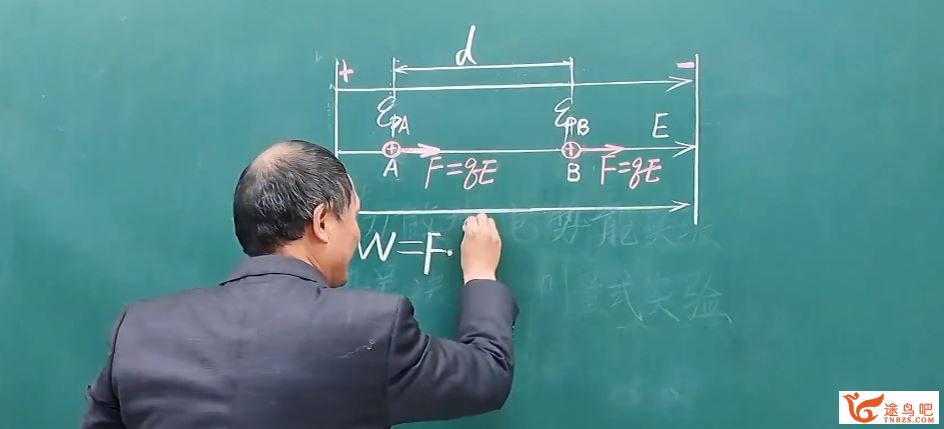 d
+ -
εPA εPB E
A F=qE B F=qE
W=F·
电势能实验
式实验
途鸟吧
TNBZS.COM